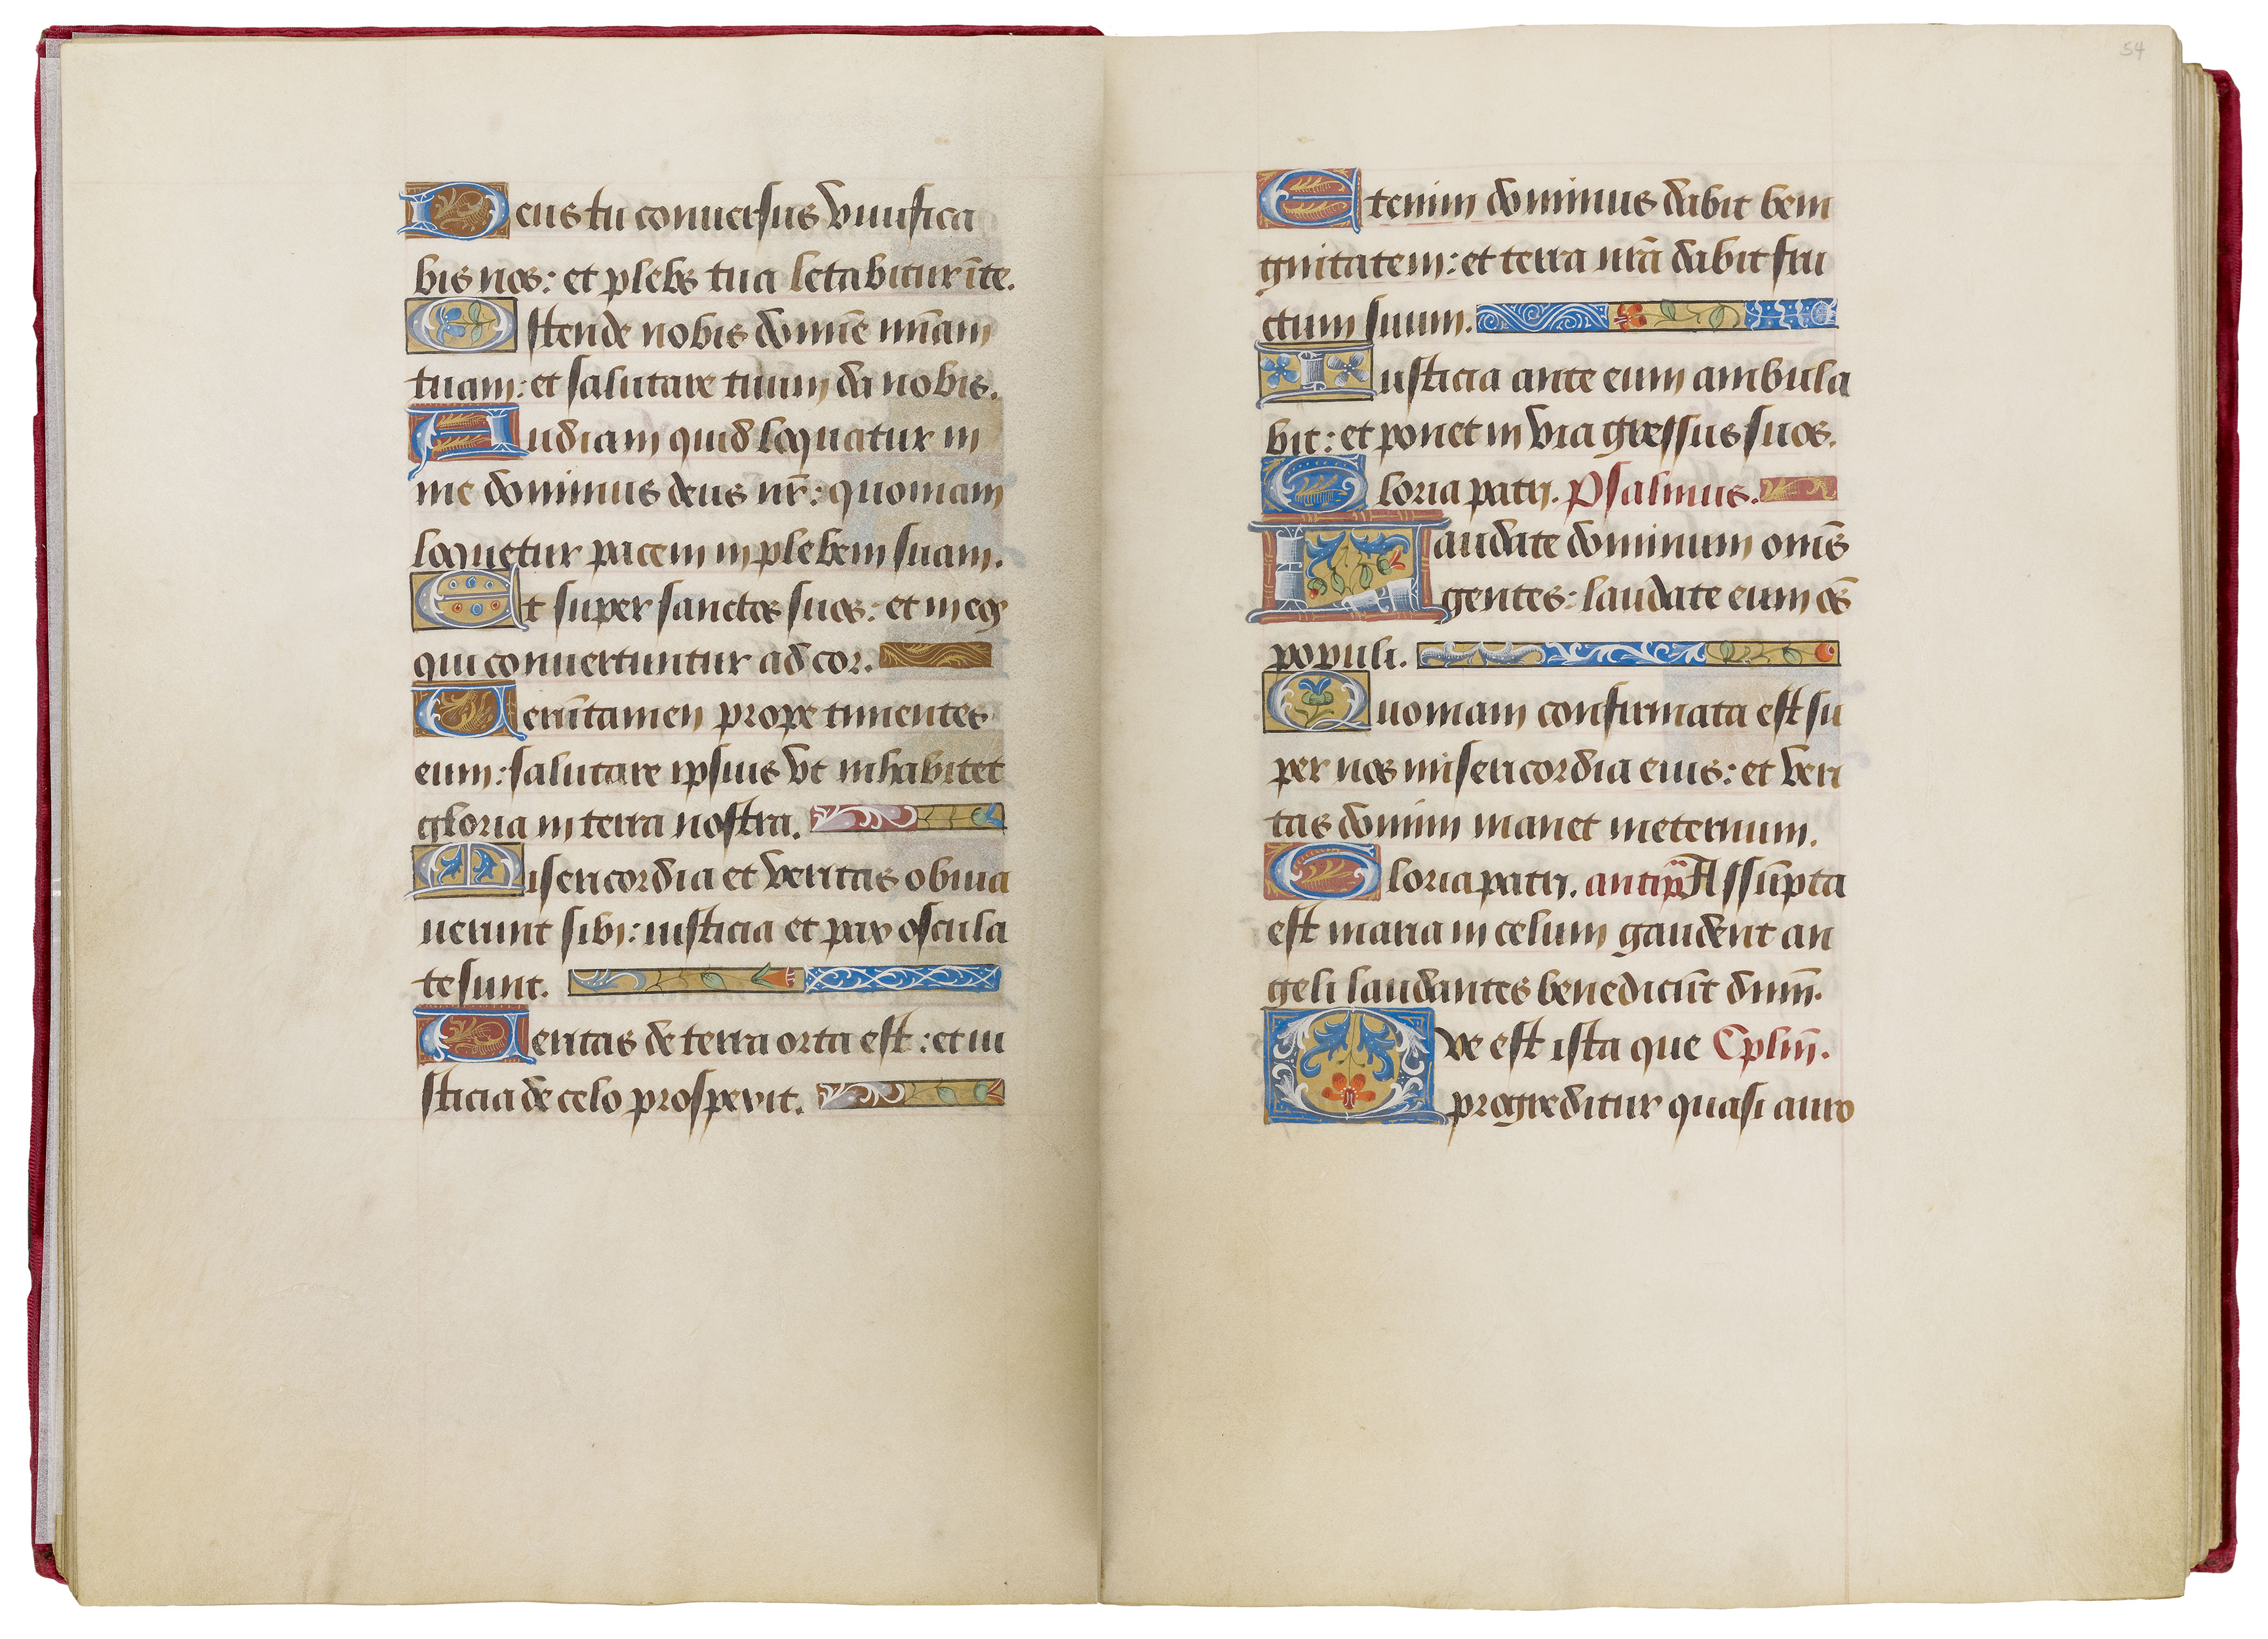 Deus tu conuersus viuifica
bis nos: et plebs tua letabitur ī te.
Ostende nobis domīe mīam
tuam: et salutare tuum da nobis.
Audiam quid loquatur in
me dominus deus nr̄: quoniam
loquetur pacem in plebem suam.
Et super sanctos suos: et in eos
qui conuertuntur ad cor.
Verūtamen prope timentes
eum: salutare ipsius vt inhabitet
gloria in terra nostra.
Misericordia et veritas obuia
uerunt sibi: iusticia et pax oscula
te sunt.
Veritas de terra orta est: et iu
sticia de celo prospexit.
54
Etenim dominus dabit beni
gnitatem: et terra nrā dabit fru
ctum suum.
Iusticia ante eum ambula
bit: et ponet in via gressus suos.
Gloria patri. Psalmus.
Laudate dominum om̄s
gentes: laudate eum om̄s
populi.
Quoniam confirmata est su
per nos misericordia eius: et veri
tas domini manet in eternum.
Gloria patri. antip̄. Assūpta
est maria in celum gaudent an
geli laudantes benedicūt dnm̄.
Que est ista que Cplm̄.
progreditur quasi auro